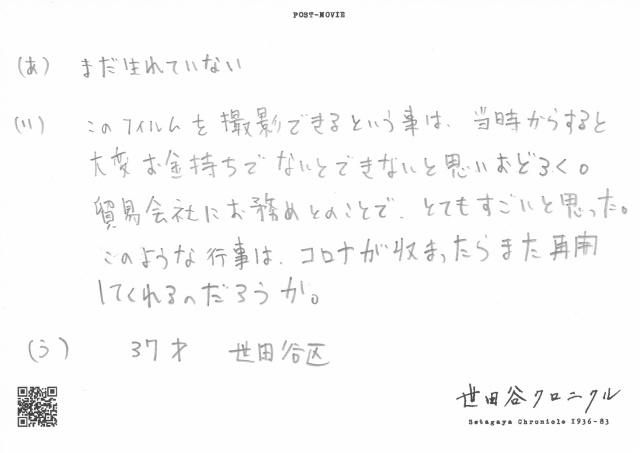 POST-MOVIE
(あ) まだ生れていない
(い) このフィルムを撮影できるという事は、当時からすると
大変お金持ちでないとできないと思いおどろく。
貿易会社にお務めとのことで、とてもすごいと思った。
このような行事は、コロナが収まったらまた再開
してくれるのだろうか。
(う) 37才 世田谷区
世田谷クロニクル
Setagaya Chronicle 1936-83